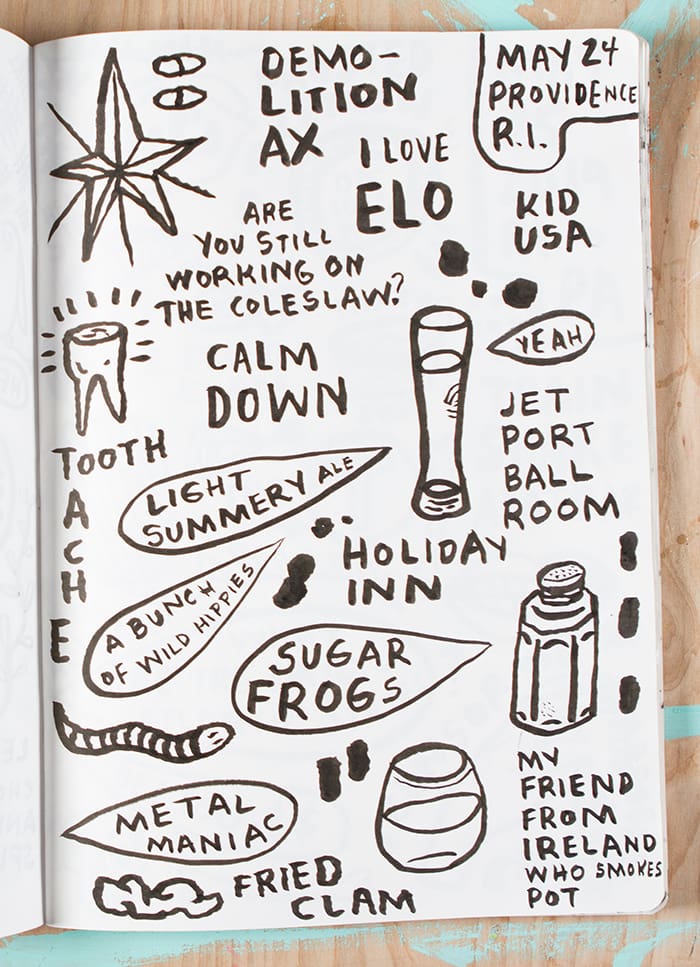 DEMO-
LITION
AX
MAY 24
PROVIDENCE
R.I.
I LOVE
ELO
KID
USA
ARE
YOU STILL
WORKING ON
THE COLESLAW?
YEAH
CALM
DOWN
JET
PORT
BALL
ROOM
TOOTH
A
C
H
E
LIGHT
SUMMERY ALE
HOLIDAY
INN
A BUNCH
OF WILD HIPPIES
SUGAR
FROGS
METAL
MANIAC
MY
FRIEND
FROM
IRELAND
WHO SMOKES
POT
FRIED
CLAM